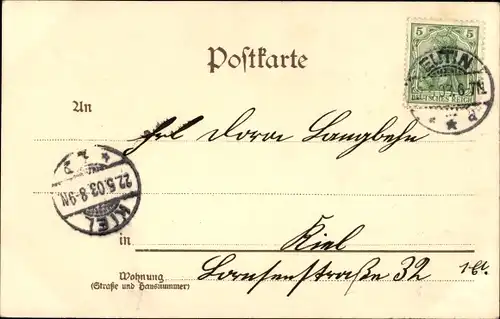 Postkarte
5 5
DEUTSCHES REICH
EUTIN
6-7N.
An
Frl Dora Langbehn
22.5.03.8-9N
KIEL
in Kiel
Wohnung Lornsenstraße 32
(Straße und Hausnummer)